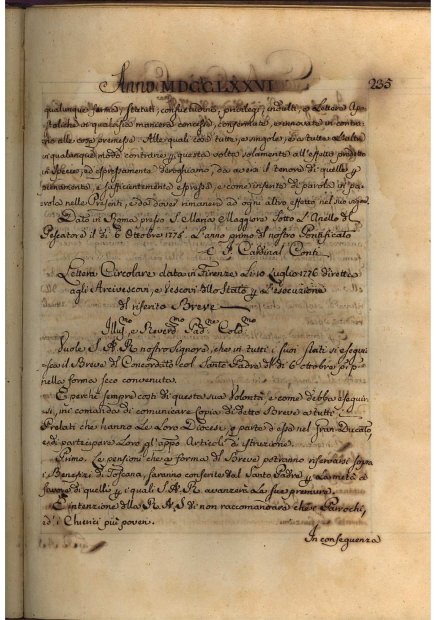 Anno MDCCLXXVI 235
qualunque forma, statuti, consuetudini, privilegj, indulti, e Lettere Apo-
stoliche in qualsisia maniera concesse, confermate, e rinnovate in contra-
rio alle cose premesse. Alle quali cose tutte, e singole, ed a tutte l'altre
in qualunque modo contrarie, questa volta solamente all'effetto predetto
espressamente deroghiamo, da avere il tenore di quelle
pienamente e sufficientemente espresse, e come inserte di parola in pa-
rola nelle Presenti, e da dover rimanere ad ogni altro effetto nel suo vigore.
Dato in Roma presso S. Maria Maggiore sotto L'Anello del
Pescatore il dì 6 Ottobre 1775. L'anno primo del nostro Pontificato
I. Cardinal Conti
Lettera Circolare data in Firenze Luglio 1776 diretta
agli Arcivescovi, e Vescovi dello Stato L'esecuzione
del riferito Breve
Illmo, e Reverdmo Padne Coldmo
Vuole S. A. R. nostro Signore, che in tutti i suoi stati si esegui-
sca il Breve di Concordato col Santo Padre de' 6 ottobre
nella forma seco convenuta.
E perchè sempre costi di questa sua Volontà e come debba eseguir-
si, mi comanda di comunicare Copia di detto Breve a tutti i
Prelati che hanno Le Loro Diocesi o parte d'esse nel Gran Ducato,
e di partecipare Loro gl'appsi Articoli d'istruzione.
Primo. Le pensioni che a forma di Breve potranno riservarsi sopra
i Benefizi di Toscana, saranno conferite dal Santo Padre La metà a
favore di quelli i quali S. A. R. avanzerà Le sue premure.
È intenzione della R. A. S. di non raccomandare che i Parrochi,
ed i Chierici più poveri.
In conseguenza